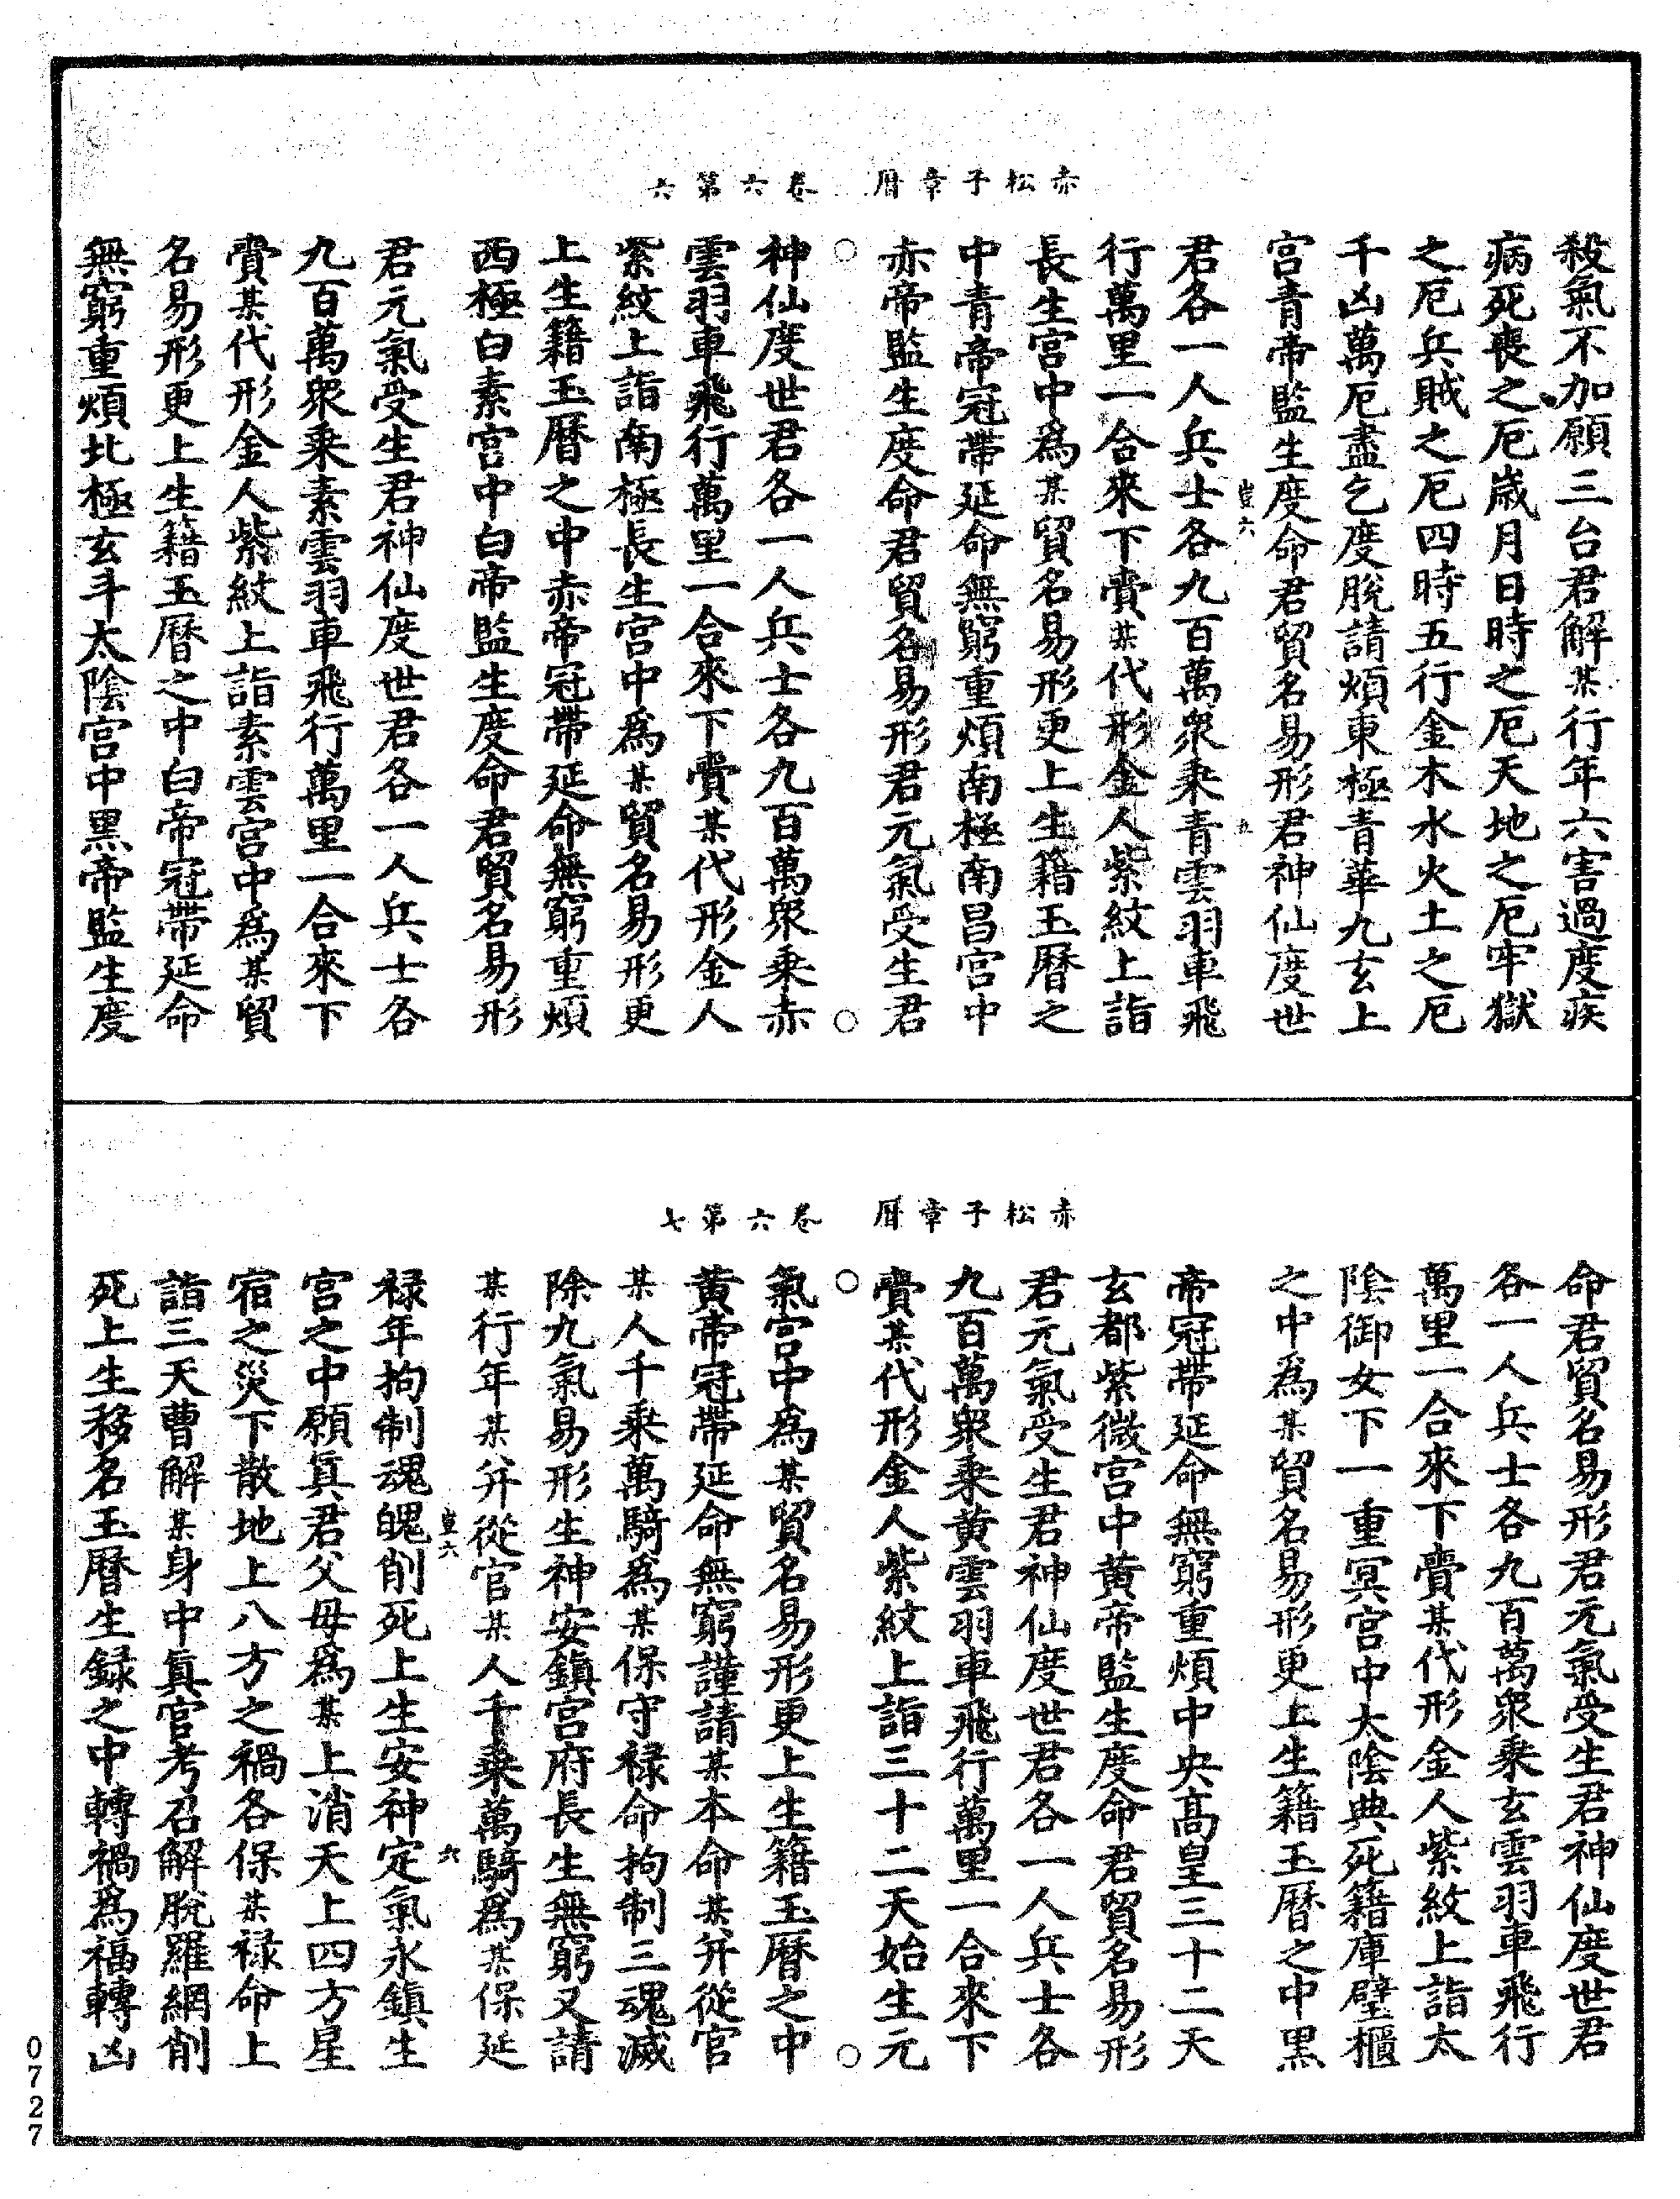 赤松子章曆 卷六第六
殺氣不加願三台君解某行年六害過度疾
病死喪之厄歲月日時之厄天地之厄牢獄
之厄兵賊之厄四時五行金木水火土之厄
千凶萬厄盡乞度脫請煩東極青華九玄上
宮青帝監生度命君貿名易形君神仙度世
豈六 五
君各一人兵士各九百萬眾乘青雲羽車飛
行萬里一合來下賫某代形金人紫紋上詣
長生宮中為某貿名易形更上生籍玉曆之
中青帝冠帶延命無窮重煩南極南昌宮中
赤帝監生度命君貿名易形君元氣受生君
神仙度世君各一人兵士各九百萬眾乘赤
雲羽車飛行萬里一合來下賫某代形金人
紫紋上詣南極長生宮中為某貿名易形更
上生籍玉曆之中赤帝冠帶延命無窮重煩
西極白素宮中白帝監生度命君貿名易形
君元氣受生君神仙度世君各一人兵士各
九百萬眾乘素雲羽車飛行萬里一合來下
賫某代形金人紫紋上詣素雲宮中為某貿
名易形更上生籍玉曆之中白帝冠帶延命
無窮重煩北極玄斗太陰宮中黑帝監生度
赤松子章曆 卷六第七
命君貿名易形君元氣受生君神仙度世君
各一人兵士各九百萬眾乘玄雲羽車飛行
萬里一合來下賫某代形金人紫紋上詣太
陰御女下一重冥宮中太陰典死籍庫壁櫃
之中為某貿名易形更上生籍玉曆之中黑
帝冠帶延命無窮重煩中央高皇三十二天
玄都紫微宮中黃帝監生度命君貿名易形
君元氣受生君神仙度世君各一人兵士各
九百萬眾乘黃雲羽車飛行萬里一合來下
賫某代形金人紫紋上詣三十二天始生元
氣宮中為某貿名易形更上生籍玉曆之中
黃帝冠帶延命無窮謹請某本命某并從官
某人千乘萬騎為某保守祿命拘制三魂滅
除九氣易形生神安鎮宮府長生無窮又請
某行年某并從官某人千乘萬騎為某保延
豈六 六
祿年拘制魂魄削死上生安神定氣永鎮生
宮之中願真君父母為某上消天上四方星
宿之災下散地上八方之禍各保某祿命上
詣三天曹解某身中真官考召解脫羅網削
死上生移名玉曆生錄之中轉禍為福轉凶
0727